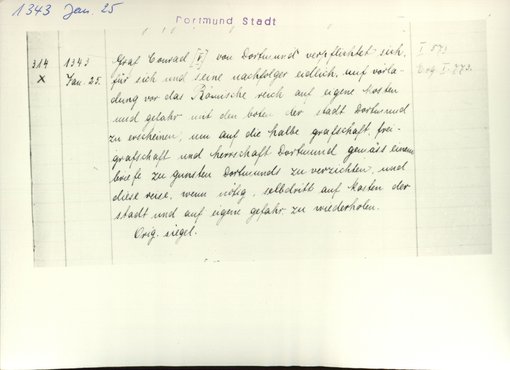 1343 Jan. 25
Dortmund Stadt
314 1343 Graf Conrad [V] von Dortmund verpflichtet sich, I. 573
X Jan. 25. für sich und seine nachfolger eidlich, auf vorla- Orig. I. 773.
dung vor das Römische reich auf eigene kosten
und gefahr mit den boten der stadt Dortmund
zu erscheinen, um auf die halbe grafschaft, frei-
grafschaft und herrschaft Dortmund gemäss einem
briefe zu gunsten Dortmunds zu verzichten, und
diese reise, wenn nötig, selbdritt auf kosten der
stadt und auf eigene gefahr zu wiederholen.
Orig. siegel.